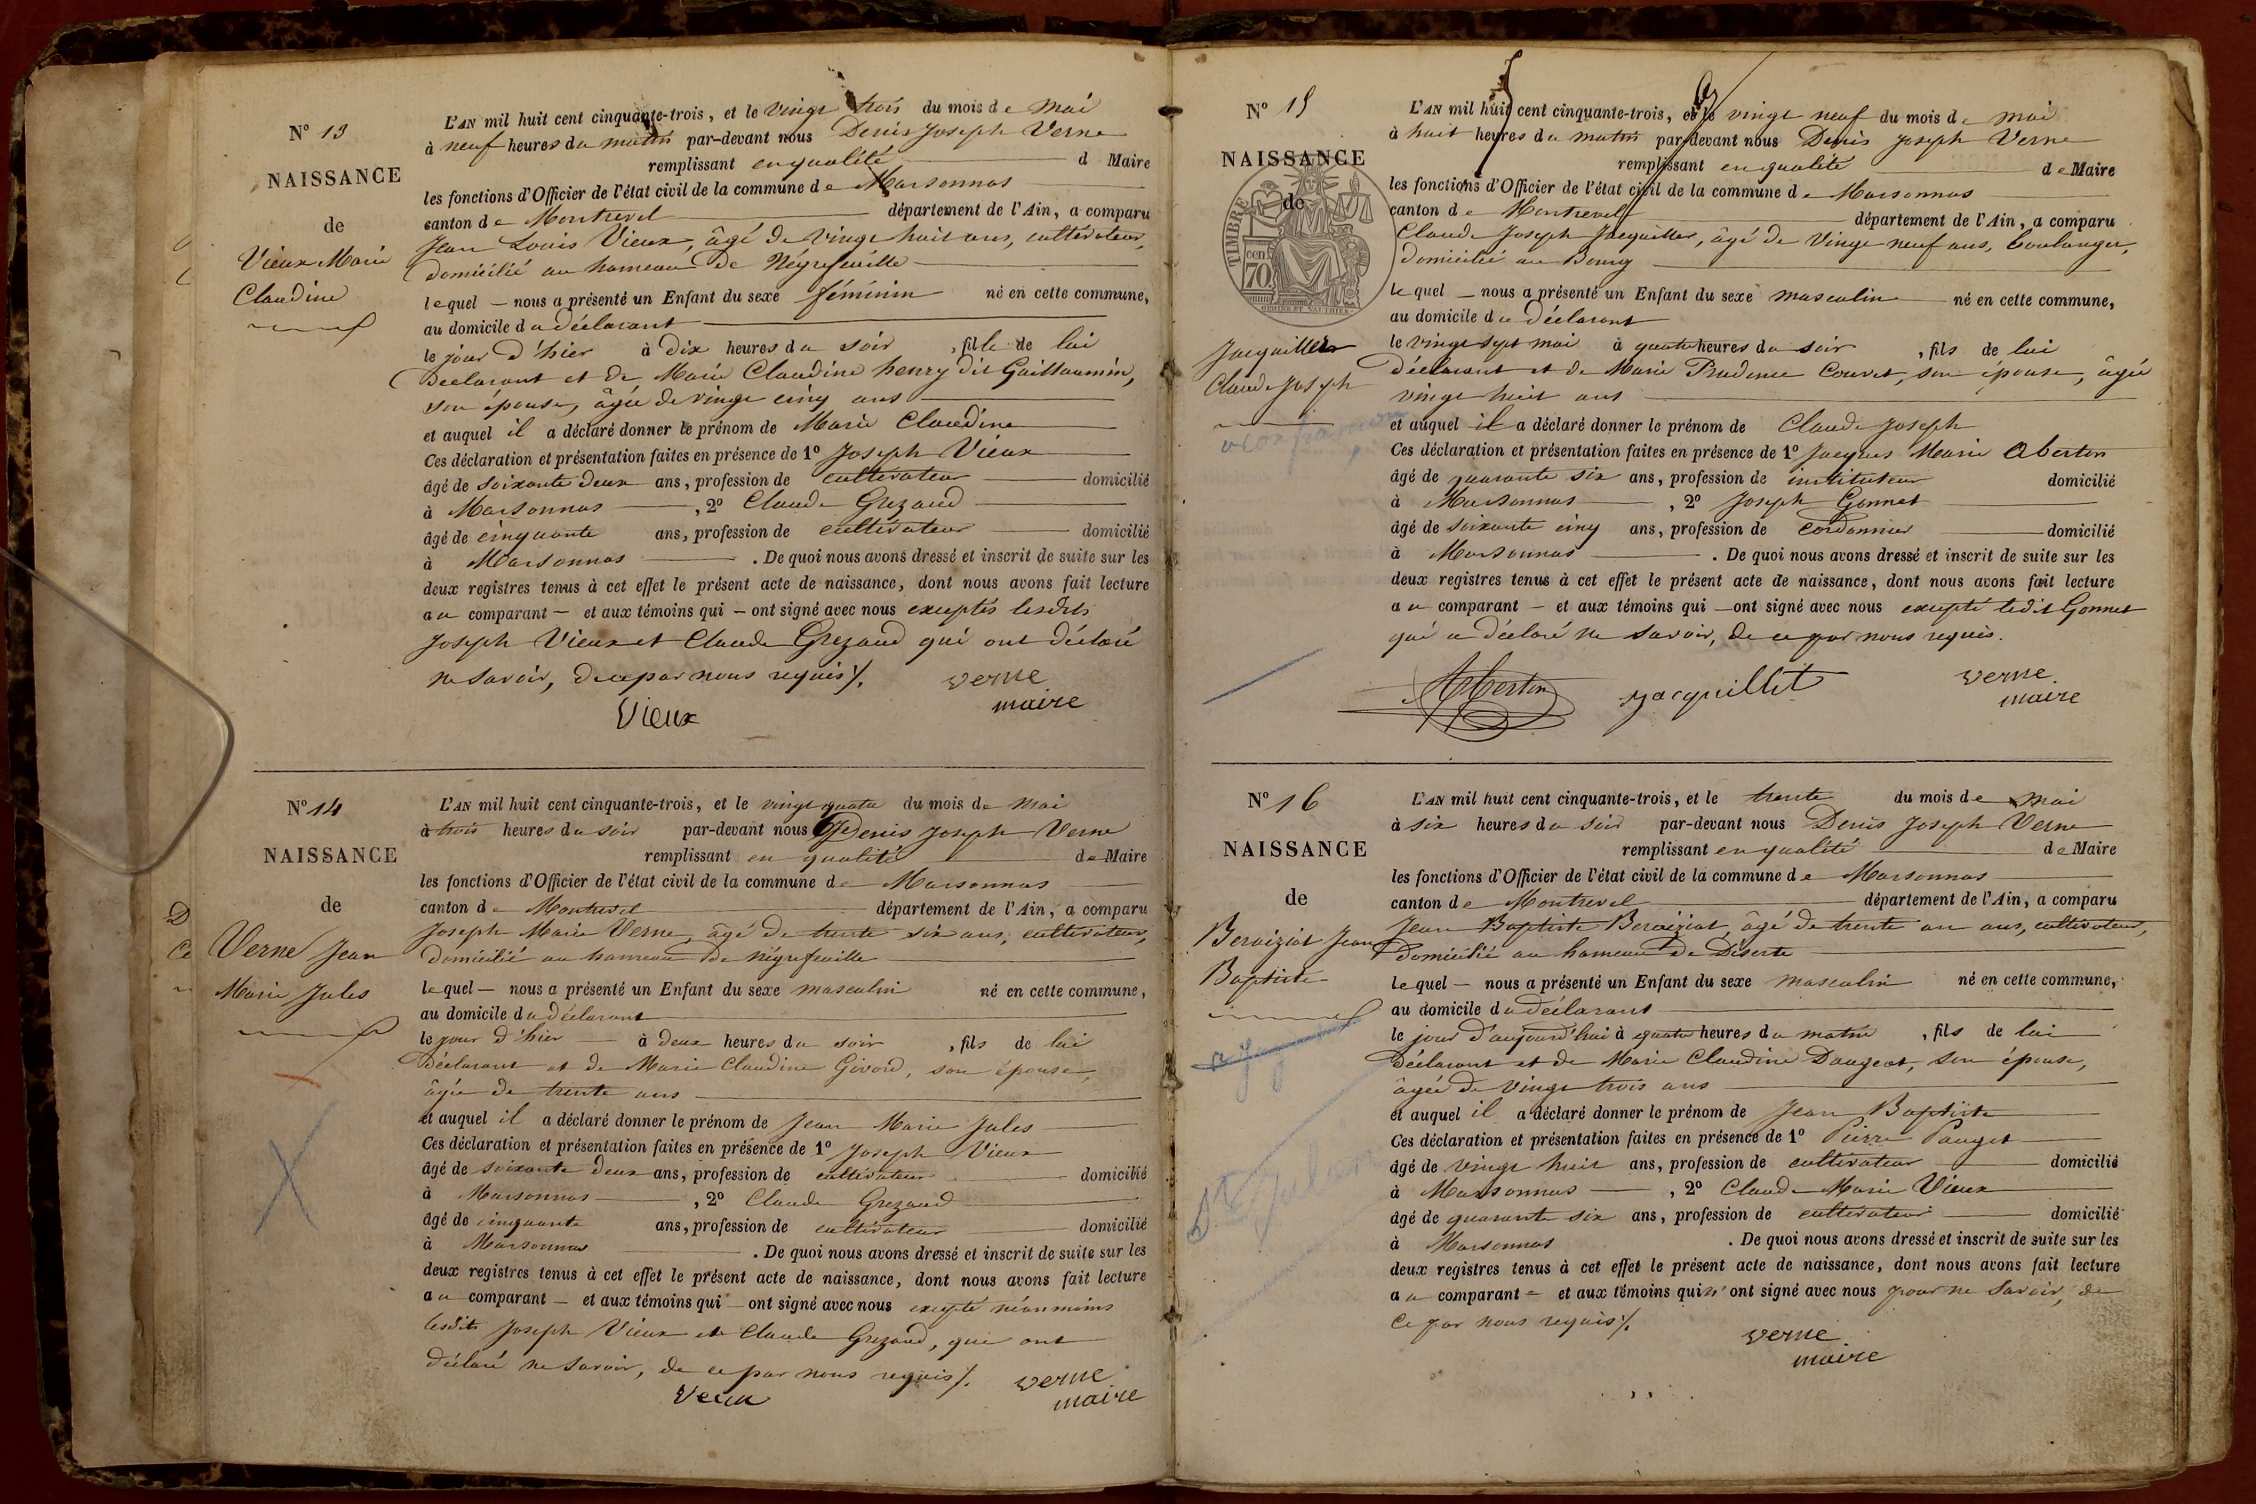 N° 13
NAISSANCE
de
Vieux Marie
Claudine
L'AN mil huit cent cinquante-trois, et le vingt trois du mois de mai
à neuf heures du matin par-devant nous Denis Joseph Verne
remplissant en qualité d Maire
les fonctions d'Officier de l'état civil de la commune de Marsonnas
canton de Montrevel département de l'Ain, a comparu
Jean Louis Vieux, âgé de vingt huit ans, cultivateur,
domicilié au hameau de Négrefeuille
lequel — nous a présenté un Enfant du sexe féminin né en cette commune,
au domicile du déclarant
le jour d'hier à dix heures du soir, fille de lui
déclarant et de Marie Claudine henry dit Guillaumin,
son épouse, âgée de vingt cinq ans
et auquel il a déclaré donner le prénom de Marie Claudine
Ces déclaration et présentation faites en présence de 1° Joseph Vieux
âgé de soixante deux ans, profession de cultivateur domicilié
à Marsonnas, 2° Claude Grezaud
âgé de cinquante ans, profession de cultivateur domicilié
à Marsonnas. De quoi nous avons dressé et inscrit de suite sur les
deux registres tenus à cet effet le présent acte de naissance, dont nous avons fait lecture
au comparant — et aux témoins qui — ont signé avec nous exceptés lesdits
Joseph Vieux et Claude Grezaud qui ont déclaré
ne savoir, de ce par nous requis ./.
Verne
maire
Vieux
N° 14
NAISSANCE
de
Verne Jean
Marie Jules
L'AN mil huit cent cinquante-trois, et le vingt quatre du mois de mai
à trois heures du soir par-devant nous Denis Joseph Verne
remplissant en qualité de Maire
les fonctions d'Officier de l'état civil de la commune de Marsonnas
canton de Montrevel département de l'Ain, a comparu
Joseph Marie Verne, âgé de trente six ans, cultivateur,
domicilié au hameau de Négrefeuille
lequel — nous a présenté un Enfant du sexe masculin né en cette commune,
au domicile du déclarant
le jour d'hier — à deux heures du soir, fils de lui
déclarant et de Marie Claudine Givord, son épouse,
âgée de trente ans
et auquel il a déclaré donner le prénom de Jean Marie Jules
Ces déclaration et présentation faites en présence de 1° Joseph Vieux
âgé de soixante deux ans, profession de cultivateur domicilié
à Marsonnas, 2° Claude Grezaud
âgé de cinquante ans, profession de cultivateur domicilié
à Marsonnas. De quoi nous avons dressé et inscrit de suite sur les
deux registres tenus à cet effet le présent acte de naissance, dont nous avons fait lecture
au comparant — et aux témoins qui — ont signé avec nous excepté néanmoins
lesdits Joseph Vieux et Claude Grezaud, qui ont
déclaré ne savoir, de ce par nous requis ./.
Verne
maire
N° 15
NAISSANCE
de
TIMBRE
70 cen.
Jacquillet
Claude Joseph
L'AN mil huit cent cinquante-trois, et le vingt neuf du mois de mai
à huit heures du matin par-devant nous Denis Joseph Verne
remplissant en qualité de Maire
les fonctions d'Officier de l'état civil de la commune de Marsonnas
canton de Montrevel département de l'Ain, a comparu
Claude Joseph Jacquillet, âgé de vingt neuf ans, boulanger,
domicilié au Bourg
lequel — nous a présenté un Enfant du sexe masculin né en cette commune,
au domicile du déclarant
le vingt sept mai à quatre heures du soir, fils de lui
déclarant et de Marie Prudence Couvet, son épouse, âgée
vingt huit ans
et auquel il a déclaré donner le prénom de Claude Joseph
Ces déclaration et présentation faites en présence de 1° Jacques Marie Oberton
âgé de quarante six ans, profession de instituteur domicilié
à Marsonnas, 2° Joseph Gonnet
âgé de soixante cinq ans, profession de Cordonnier domicilié
à Marsonnas. De quoi nous avons dressé et inscrit de suite sur les
deux registres tenus à cet effet le présent acte de naissance, dont nous avons fait lecture
au comparant — et aux témoins qui — ont signé avec nous excepté ledit Gonnet
qui a déclaré ne savoir, de ce par nous requis.
Jacquillet
Verne
maire
N° 16
NAISSANCE
de
Beraiziat Jean
Baptiste
L'AN mil huit cent cinquante-trois, et le trente du mois de mai
à six heures du soir par-devant nous Denis Joseph Verne
remplissant en qualité de Maire
les fonctions d'Officier de l'état civil de la commune de Marsonnas
canton de Montrevel département de l'Ain, a comparu
Jean Baptiste Beraiziat, âgé de trente un ans, cultivateur,
domicilié au hameau de Diserte
lequel — nous a présenté un Enfant du sexe masculin né en cette commune,
au domicile du déclarant
le jour d'aujourd'hui à quatre heures du matin, fils de lui
déclarant et de Marie Claudine Daugeat, son épouse,
âgée de vingt trois ans
et auquel il a déclaré donner le prénom de Jean Baptiste
Ces déclaration et présentation faites en présence de 1° Pierre Pauget
âgé de vingt huit ans, profession de cultivateur domicilié
à Marsonnas, 2° Claude Marie Vieux
âgé de quarante six ans, profession de cultivateur domicilié
à Marsonnas. De quoi nous avons dressé et inscrit de suite sur les
deux registres tenus à cet effet le présent acte de naissance, dont nous avons fait lecture
au comparant — et aux témoins qui n'ont signé avec nous pour ne savoir, de
ce par nous requis ./.
Verne
maire